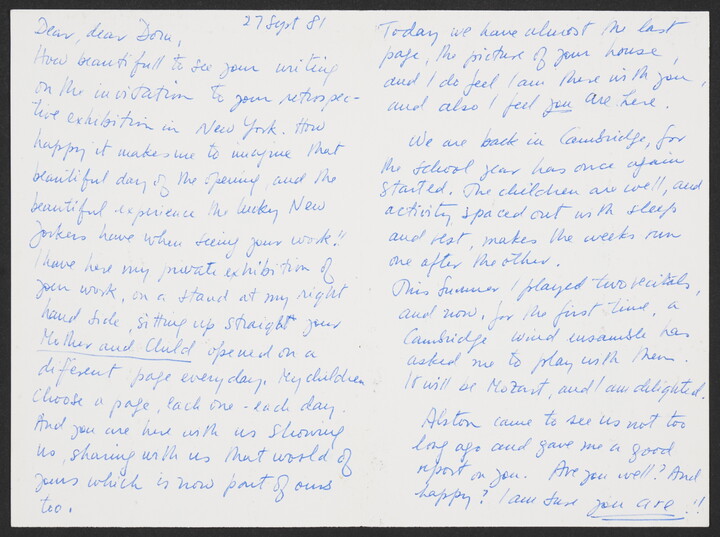 27 Sept 81
Dear, dear Dora,
How beautifull to see your writing
on the invitation to your retrospec-
tive exhibition in New York. How
happy it makes me to imagine that
beautiful day of the opening, and the
beautiful experience the lucky New
Yorkers have when seeing your work!!
I have here my private exhibition of
your work, on a stand at my right
hand side, sitting up straight your
Mother and Child opened on a
different page everyday. My children
choose a page, each one - each day.
And you are here with us showing
us, sharing with us that world of
yours which is now part of ours
too.
Today we have almost the last
page, the picture of your house,
and I do feel I am there with you,
and also I feel you are here.
We are back in Cambridge, for
the school year has once again
started. The children are well, and
activity spaced out with sleep
and rest, makes the weeks run
one after the other.
This Summer I played two recitals,
and now, for the first time, a
Cambridge wind ensamble has
asked me to play with them.
It will be Mozart, and I am delighted.
Alston came to see us not too
long ago and gave me a good
report on you. Are you well? And
happy? I am sure you are!!